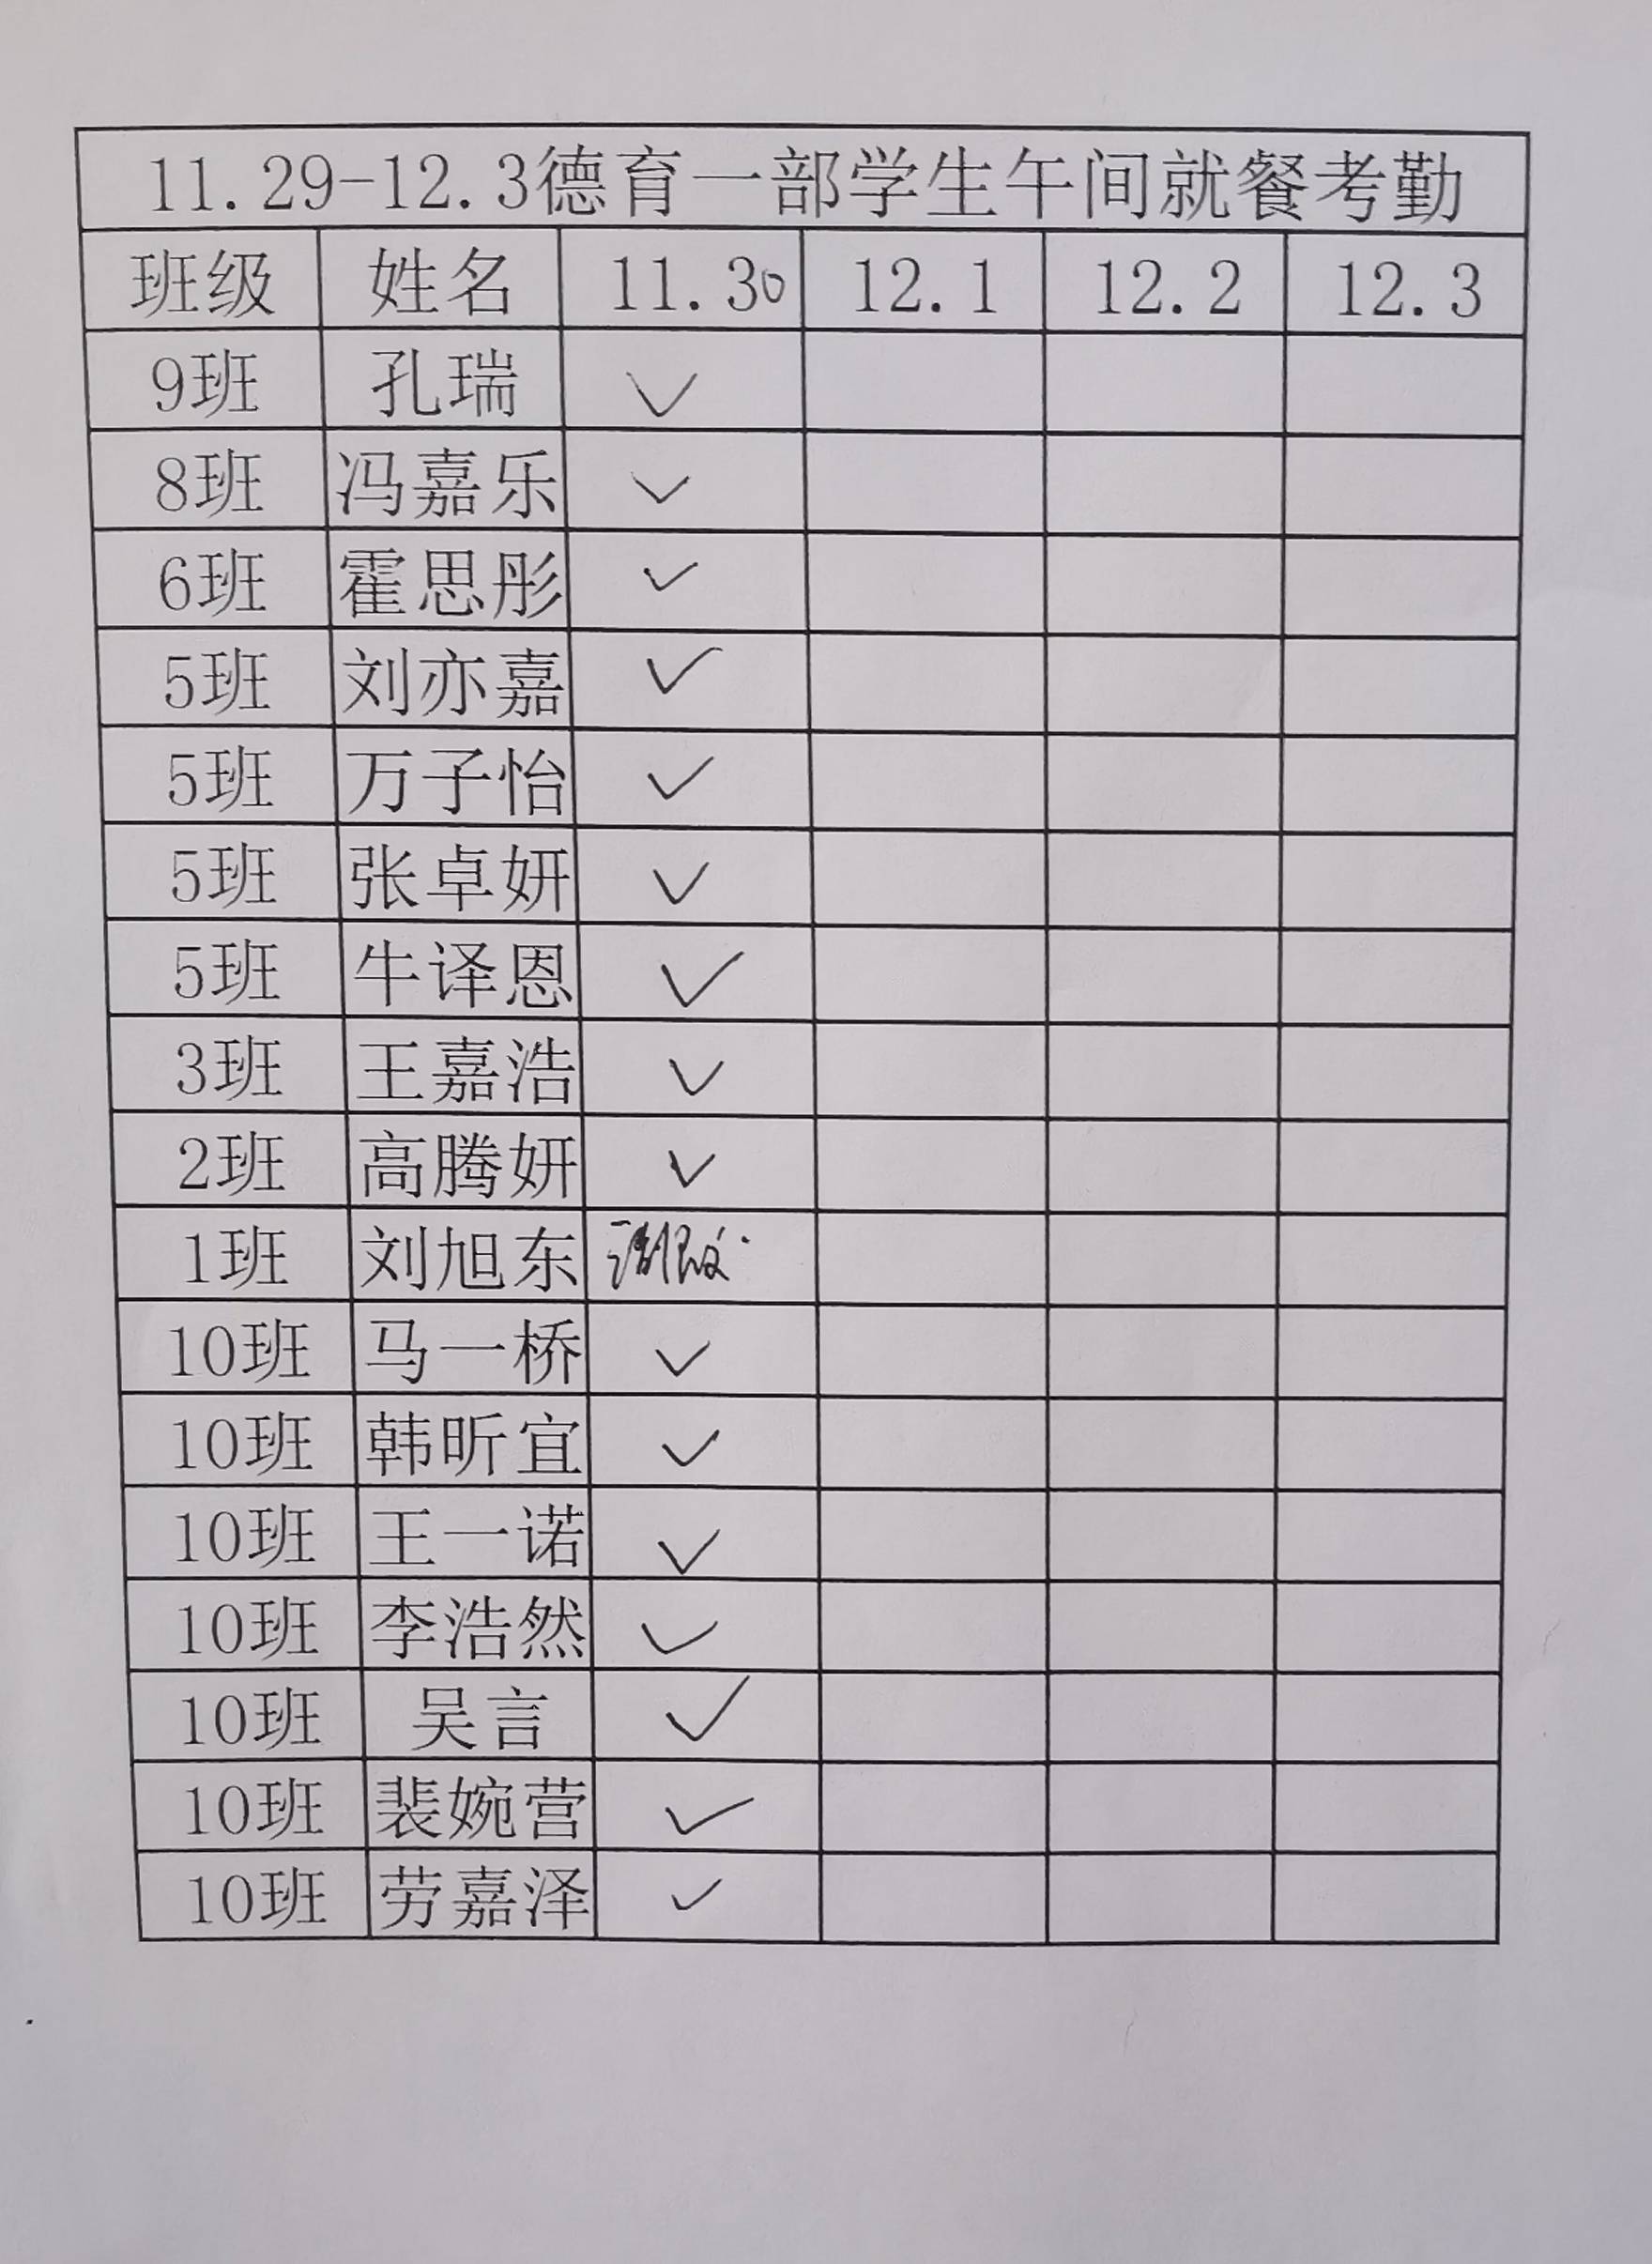 11.29-12.3德育一部学生午间就餐考勤
班级 姓名 11.30 12.1 12.2 12.3
9班 孔瑞 ✓
8班 冯嘉乐 ✓
6班 霍思彤 ✓
5班 刘亦嘉 ✓
5班 万子怡 ✓
5班 张卓妍 ✓
5班 牛译恩 ✓
3班 王嘉浩 ✓
2班 高腾妍 ✓
1班 刘旭东 请假
10班 马一桥 ✓
10班 韩昕宜 ✓
10班 王一诺 ✓
10班 李浩然 ✓
10班 吴言 ✓
10班 裴婉营 ✓
10班 劳嘉泽 ✓